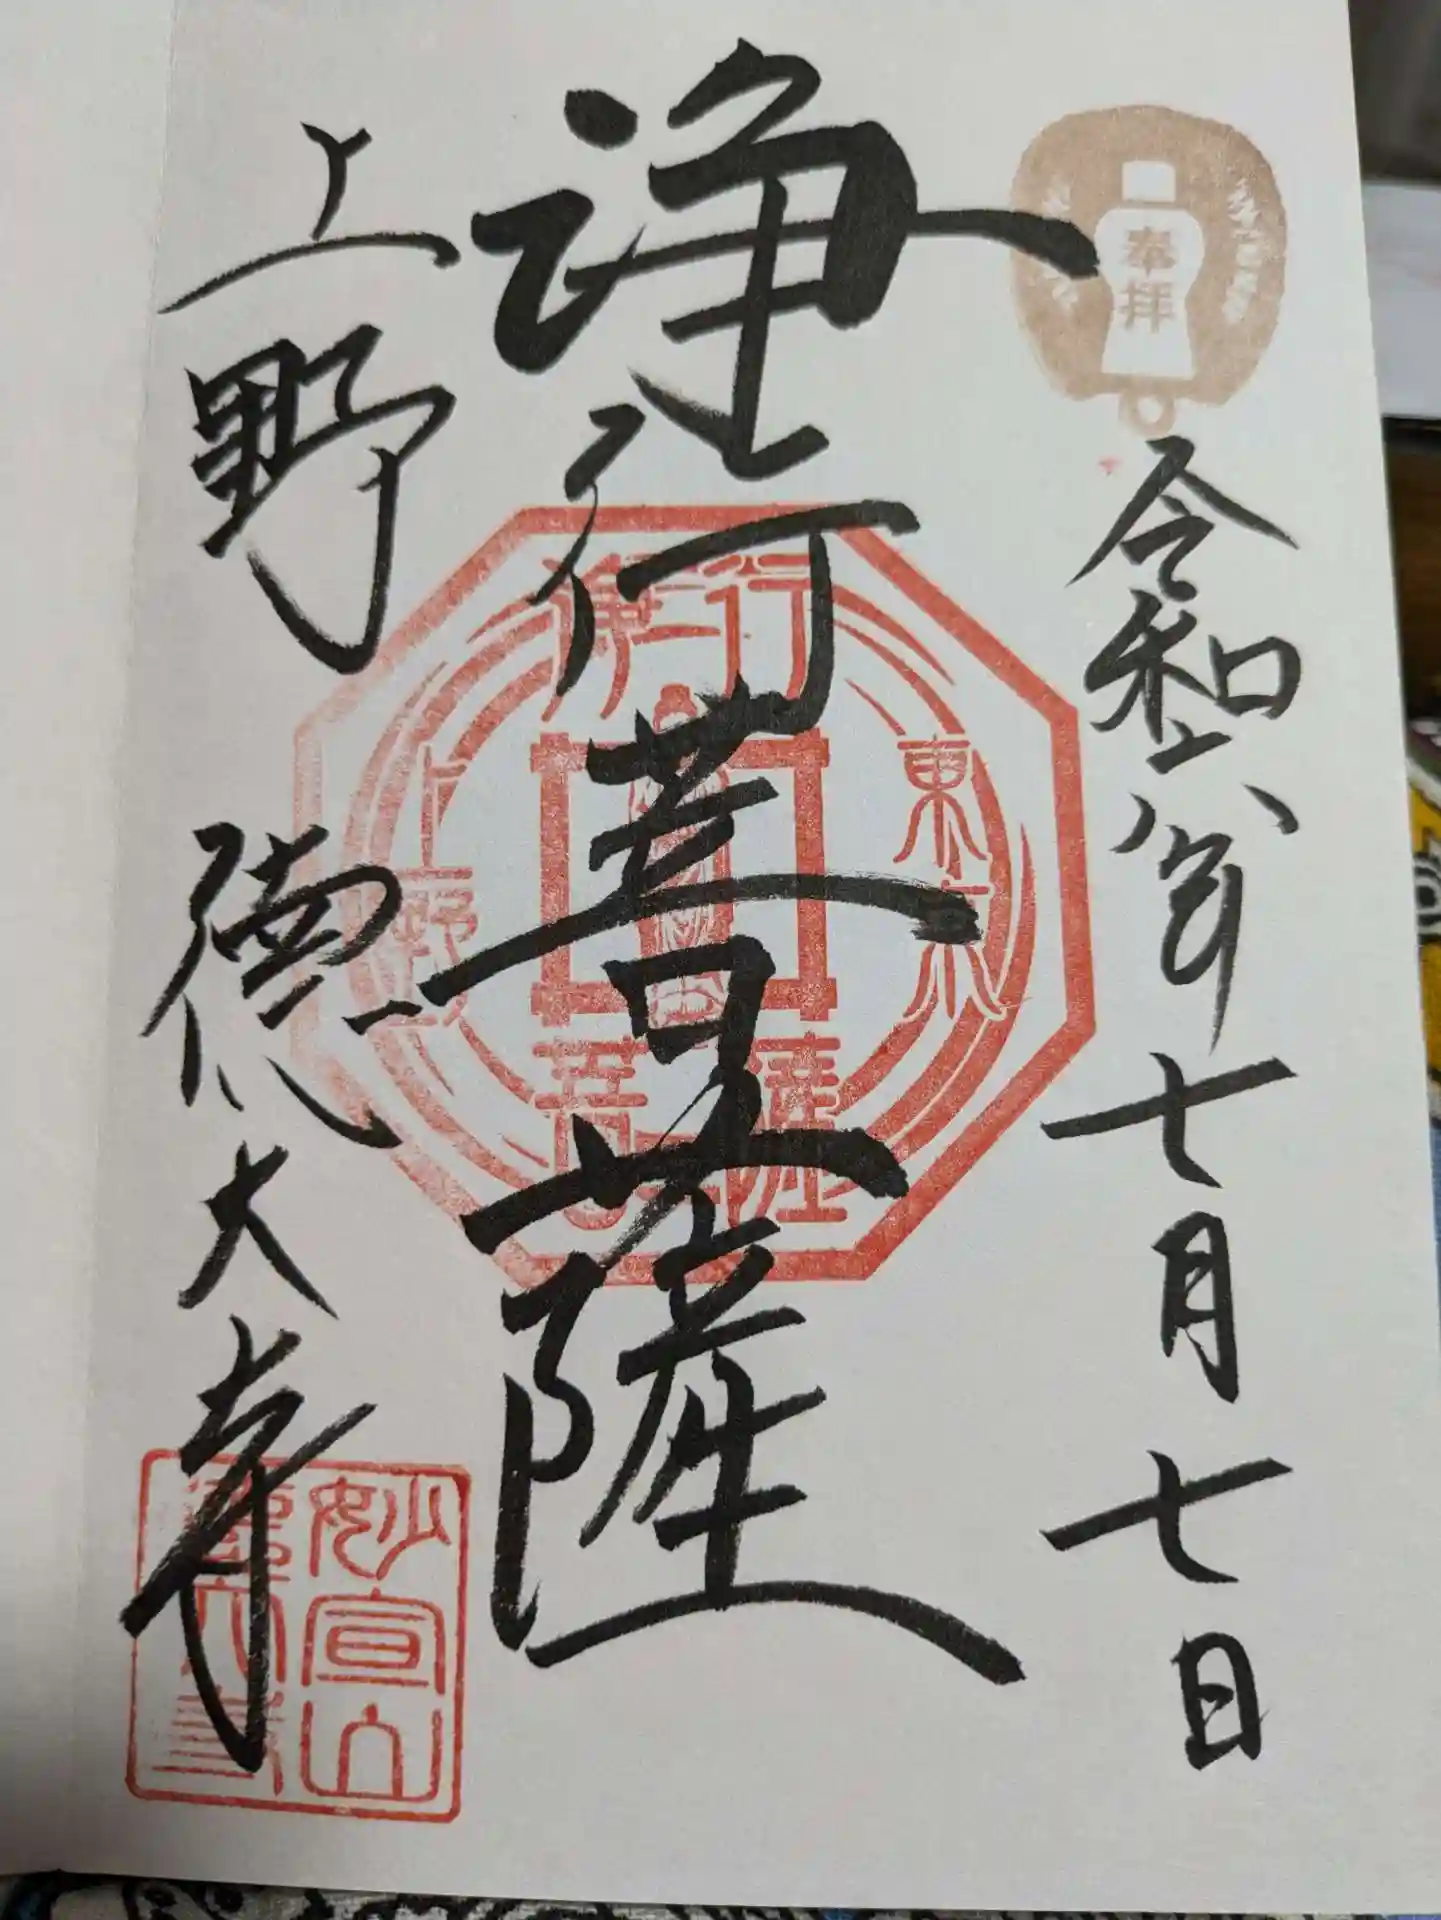 奉拝
令和六年七月七日
浄行菩薩
上野 徳大寺
浄行
東京
上野
菩薩
妙宣山
徳大寺